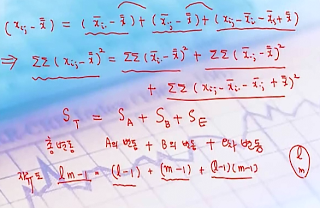 (xᵢⱼ - x̿) = (x̄ᵢ. - x̿) + (x̄.ⱼ - x̿) + (xᵢⱼ - x̄ᵢ. - x̄.ⱼ + x̿)
⇒ ΣΣ(xᵢⱼ - x̿)² = ΣΣ(x̄ᵢ. - x̿)² + ΣΣ(x̄.ⱼ - x̿)²
+ ΣΣ(xᵢⱼ - x̄ᵢ. - x̄.ⱼ + x̿)²
S_T = S_A + S_B + S_E
총 변동 A의 변동 + B의 변동 + 오차 변동
자유도 lm-1 = (l-1) + (m-1) + (l-1)(m-1)
l
m